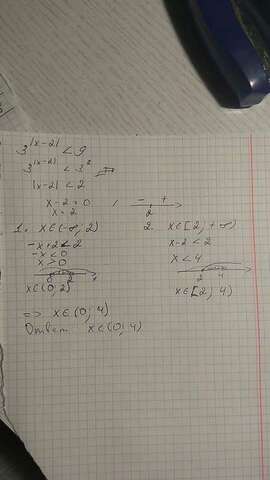 3^|x-2| < 9
3^|x-2| < 3^2
|x-2| < 2
x-2=0
x=2
- +
2
1. x∈(-∞, 2)
-x+2<2
-x<0
x>0
0 2
x∈(0; 2)
2. x∈[2, +∞)
x-2<2
x<4
2 4
x∈[2; 4)
=> x∈(0; 4)
Ответ x∈(0; 4)